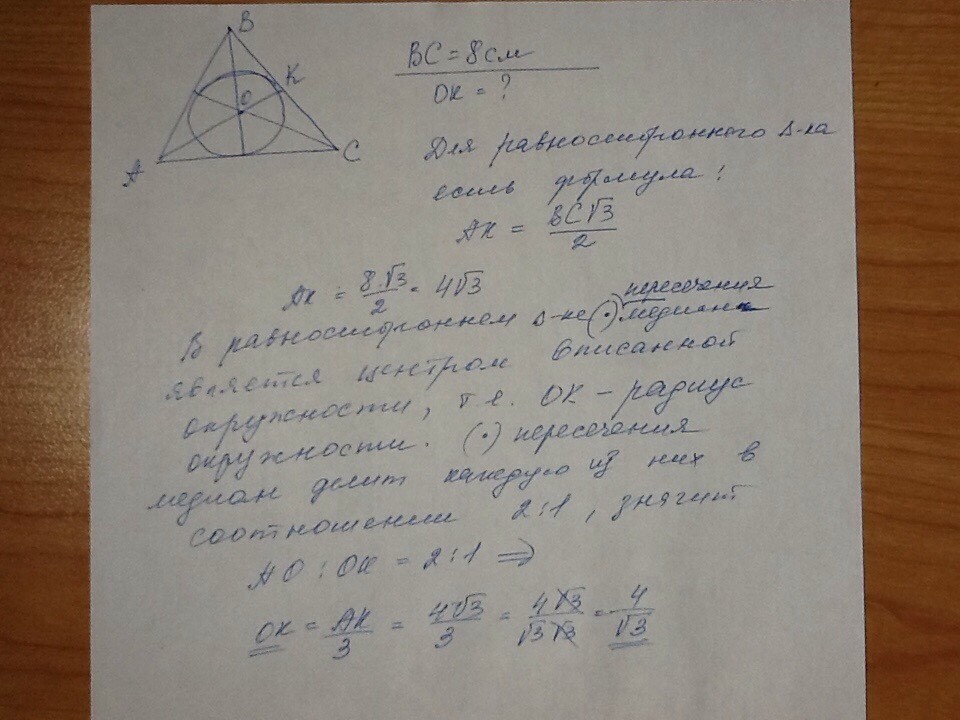 B
K
O
A
C
BC = 8 см
OK = ?
Для равностороннего Δ-ка
есть формула:
AK = BC√3 / 2
AK = 8·√3 / 2 = 4√3
В равностороннем Δ-ке (·) пересечения медиан
является центром вписанной
окружности, т.е. OK – радиус
окружности. (·) пересечения
медиан делит каждую из них в
соотношении 2:1, значит
AO : OK = 2:1 ⇒
OK = AK / 3 = 4√3 / 3 = 4√3 / √3√3 = 4 / √3